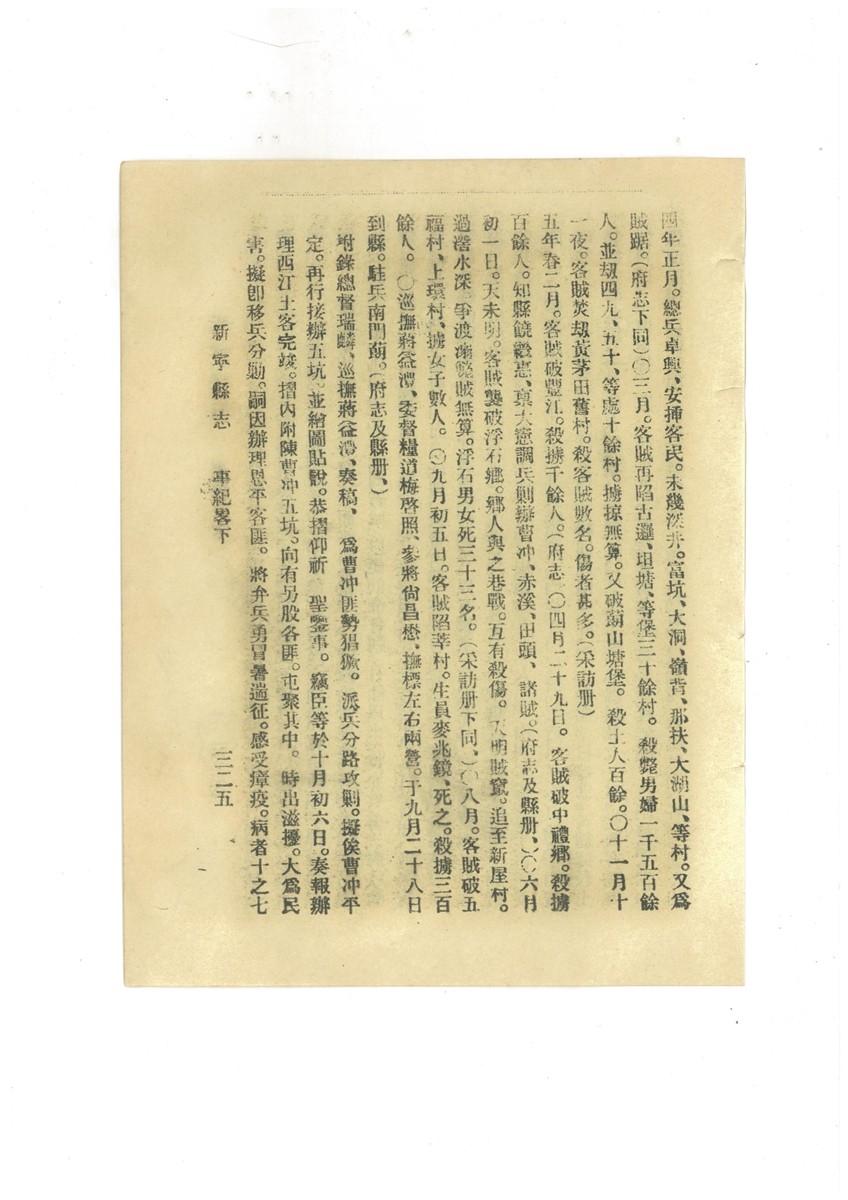 四年正月。總兵卓興、安揷客民。未幾深井。富坑、大洞、嶺背、那扶、大湖山、等村。又爲
賊踞。（府志下同）〇三月。客賊再陷古邏、坦塘、等堡三十餘村。殺斃男婦一千五百餘
人。並刼四九、五十、等處十餘村。擄掠無算。又破葫山塘堡。殺土人百餘。〇十一月十
一夜。客賊焚刼黃茅田舊村。殺客賊數名。傷者甚多。（采訪册）
五年春二月。客賊破豐江。殺擄千餘人。（府志）〇四月二十九日。客賊破中禮鄉。殺擄
百餘人。知縣饒繼惠、禀大憲調兵剿辦曹冲、赤溪、田頭、諸賊。（府志及縣册、）〇六月
初一日。天未明。客賊襲破浮石鄉。鄉人與之巷戰。互有殺傷。天明賊竄。追至新屋村。
過潽水深、爭渡溺斃賊無算。浮石男女死三十三名。（采訪册下同、）〇八月。客賊破五
福村、上環村、擄女子數人。〇九月初五日。客賊陷莘村。生員麥兆鏡、死之。殺擄三百
餘人。〇巡撫蔣益澧、委督糧道梅啓照、參將尙昌懋、撫標左右兩營。于九月二十八日
到縣。駐兵南門蓢。（府志及縣册、）
附錄總督瑞麟、巡撫蔣益澧、奏稿、 爲曹冲匪勢猖獗。派兵分路攻剿。擬俟曹冲平
定。再行接辦五坑。並繪圖貼說。恭摺仰祈 聖鑒事。竊臣等於十月初六日。奏報辦
理西江土客完竣。摺內附陳曹冲五坑。向有另股各匪。屯聚其中。時出滋擾。大爲民
害。擬卽移兵分勦。嗣因辦理恩平客匪。將弁兵勇冒暑遄征。感受瘴疫。病者十之七
新寧縣志 事紀畧下 三二五